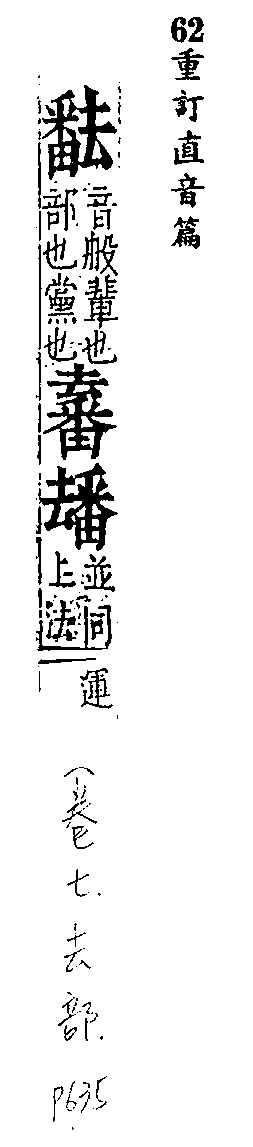 62重訂直音篇
音般輩也
部也黨也
並同
上法
運
(卷七.去部.P635